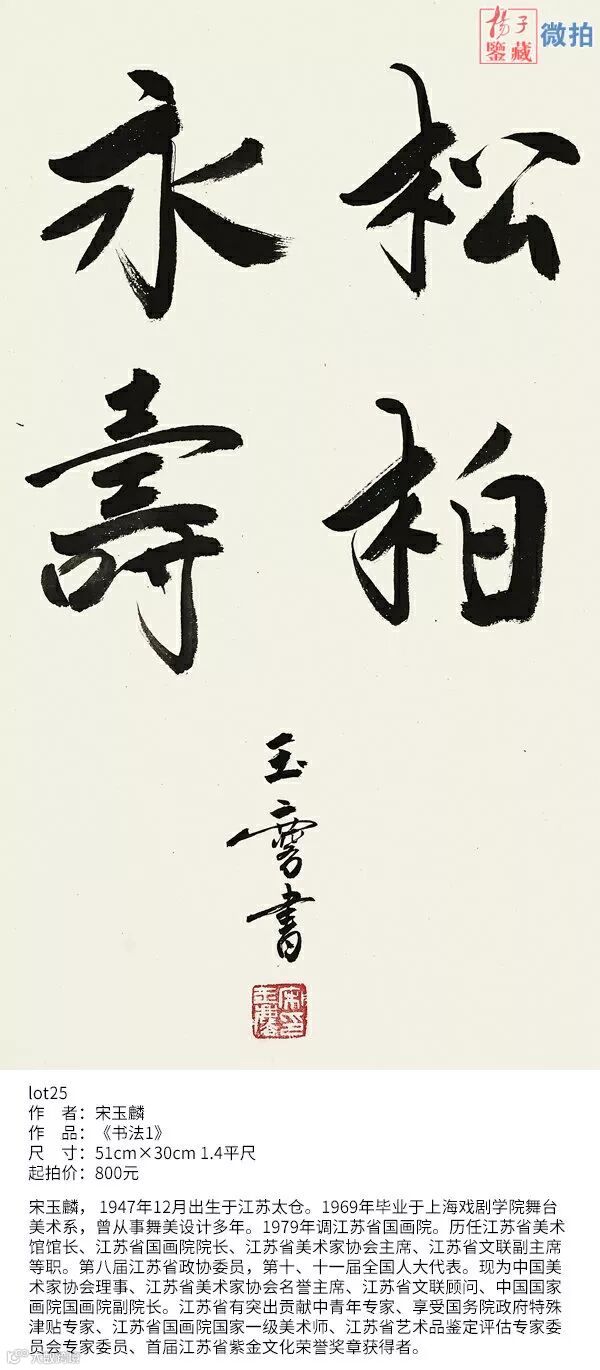 楊子
鑒藏
微拍
松柏
永壽
玉麐書
lot25
作 者：宋玉麟
作 品：《书法1》
尺 寸：51cm×30cm 1.4平尺
起拍价：800元
宋玉麟， 1947年12月出生于江苏太仓。1969年毕业于上海戏剧学院舞台
美术系，曾从事舞美设计多年。1979年调江苏省国画院。历任江苏省美术
馆馆长、江苏省国画院院长、江苏省美术家协会主席、江苏省文联副主席
等职。第八届江苏省政协委员，第十、十一届全国人大代表。现为中国美
术家协会理事、江苏省美术家协会名誉主席、江苏省文联顾问、中国国家
画院国画院副院长。江苏省有突出贡献中青年专家、享受国务院政府特殊
津贴专家、江苏省国画院国家一级美术师、江苏省艺术品鉴定评估专家委
员会专家委员、首届江苏省紫金文化荣誉奖章获得者。